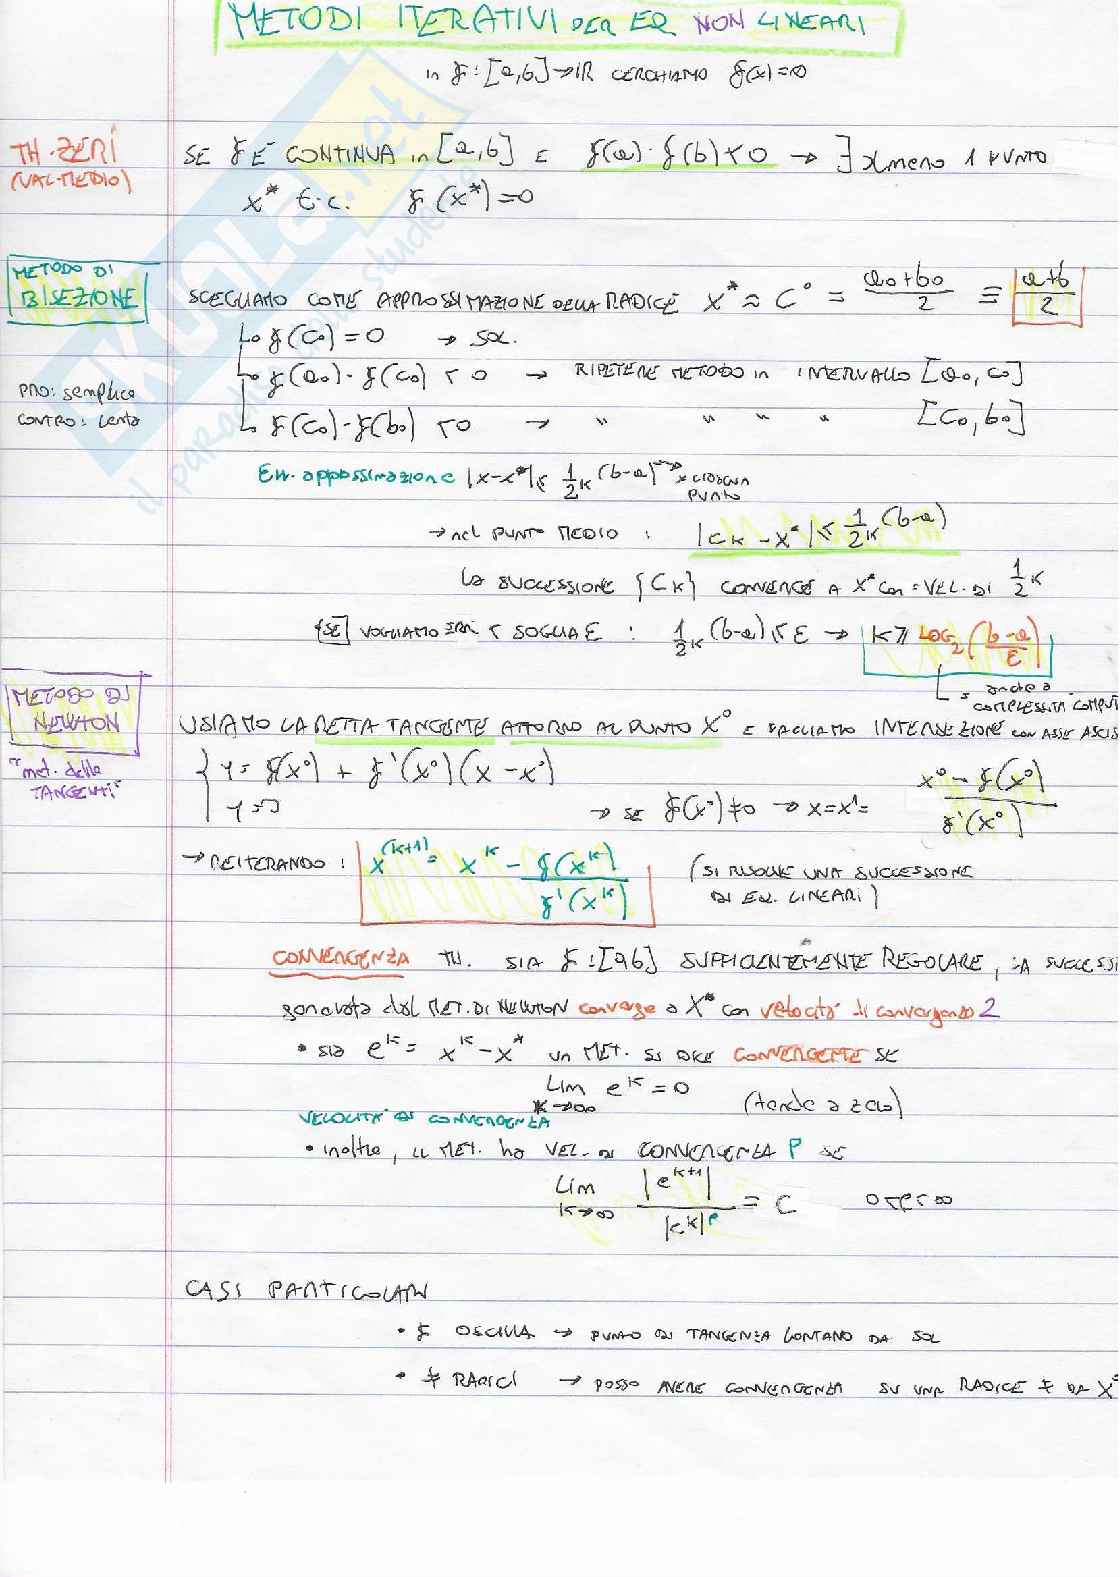 METODI ITERATIVI PER EQ NON LINEARI
in f : [a,b] → IR CERCHIAMO f(x)=0
TH. ZERI
(VAL. MEDIO)
SE f È CONTINUA in [a,b] E f(a) · f(b) < 0 → ∃ almeno 1 PUNTO
x* t.c. f(x*)=0
METODO DI
BISEZIONE
SCEGLIAMO COME APPROSSIMAZIONE DELLA RADICE x* ≈ C° = (a0+b0)/2 = (a+b)/2
f(C0) = 0 → SOL.
f(a0) · f(c0) < 0 → RIPETERE METODO in INTERVALLO [a0, c0]
PRO: semplice
CONTRO: lento
f(c0) · f(b0) < 0 → " " " " [c0, b0]
Err. approssimazione |x-x*| ≤ 1/2^k (b-a) → x ciascun
PUNTO
→ nel PUNTO MEDIO : |Ck - x*| ≤ 1/2^k (b-a)
la SUCCESSIONE {CK} CONVERGE A x* con VEL. DI 1/2^k
{SE} VOGLIAMO ERR < SOGLIA E : 1/2^k (b-a) < ε → k ≥ LOG2 ((b-a)/ε)
= anche a
COMPLESSITÀ COMPUT
METODO DI
NEWTON
"met. delle
TANGENTI"
USIAMO LA RETTA TANGENTE ATTORNO AL PUNTO x° E FACCIAMO INTERSEZIONE con ASSE ASCIS
{ y = f(x°) + f'(x°) (x - x°)
y = 0 → SE f(x°) ≠ 0 → x = x¹ = x° - f(x°)/f'(x°)
→ REITERANDO : x^(k+1) = x^k - f(x^k)/f'(x^k) (SI RISOLVE UNA SUCCESSIONE
DI EQ. LINEARI)
CONVERGENZA TH. SIA f : [a,b] SUFFICIENTEMENTE REGOLARE, LA SUCCESSI
generata dal MET. DI NEWTON converge a x* con velocità di convergenza 2
• sia e^k = x^k - x* un MET. SI DICE CONVERGENTE SE
Lim e^k = 0 (tende a zero)
k→∞
VELOCITÀ DI CONVERGENZA
• inoltre, IL MET. ha VEL. DI CONVERGENZA P SE
Lim |e^k+1| / |e^k|^P = C 0<c<∞
k→∞
CASI PARTICOLARI
• f OSCILLA → PUNTO DI TANGENZA LONTANO DA SOL
• ≠ RADICI → POSSO AVERE CONVERGENZA SU UNA RADICE ≠ DA x*
SKUOLA.net
il paradiso dello studente